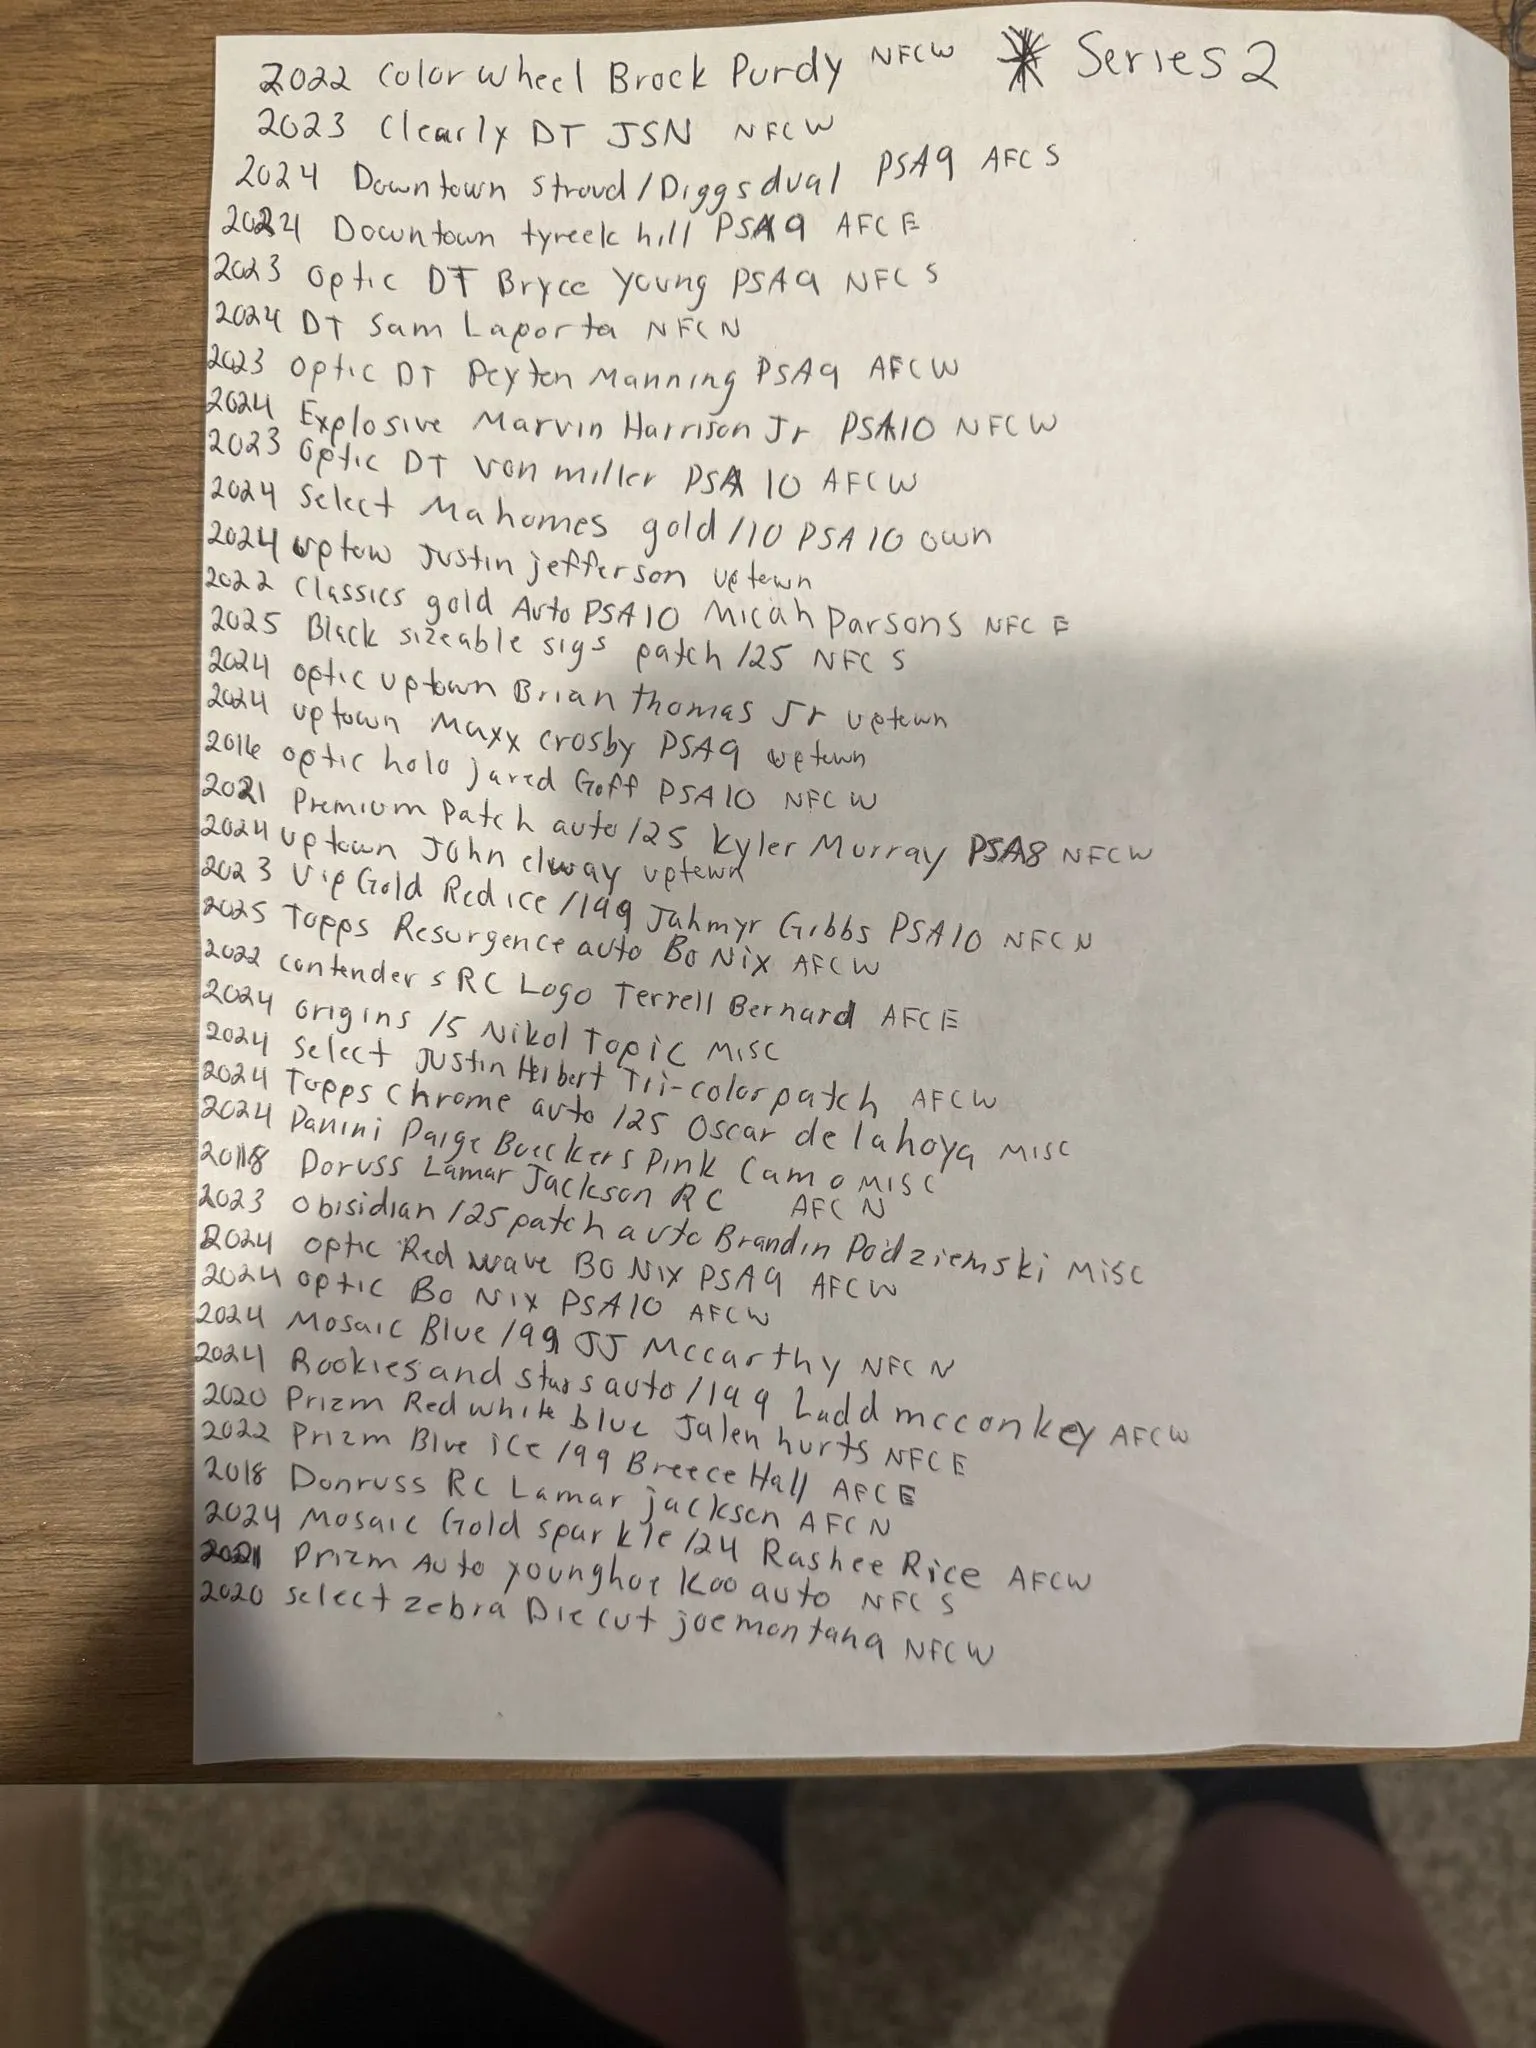 2022 Color wheel Brock Purdy NFCW * Series 2
2023 Clearly DT JSN NFCW
2024 Downtown Stroud/Diggs dual PSA9 AFC S
2024 Downtown tyreek hill PSA9 AFC E
2023 Optic DT Bryce Young PSA9 NFC S
2024 DT Sam Laporta NFC N
2023 Optic DT Peyton Manning PSA9 AFCW
2024 Explosive Marvin Harrison Jr PSA10 NFCW
2023 Optic DT Von miller PSA 10 AFCW
2024 Select Mahomes gold /10 PSA 10 own
2024 uptow Justin jefferson uptown
2022 Classics gold Auto PSA10 Micah Parsons NFC E
2025 Black sizeable sigs patch /25 NFC S
2024 optic uptown Brian thomas Jr uptown
2024 uptown Maxx crosby PSA9 uptown
2016 optic holo jared Goff PSA10 NFCW
2021 Premium Patch auto /25 Kyler Murray PSA8 NFCW
2024 uptown John elway uptown
2023 Vip Gold Red ice /199 Jahmyr Gibbs PSA10 NFC N
2025 Topps Resurgence auto Bo Nix AFCW
2022 contenders RC Logo Terrell Bernard AFC E
2024 origins /5 Nikol Topic MISC
2024 Select Justin Herbert Tri-color patch AFCW
2024 Topps Chrome auto /125 Oscar de la hoya MISC
2024 Panini Paige Bueckers Pink Camo MISC
2018 Doruss Lamar Jackson RC AFC N
2023 Obisidian /25 patch auto Brandin Podziemski MISC
2024 optic Red wave BO NIX PSA9 AFCW
2024 optic Bo Nix PSA10 AFCW
2024 Mosaic Blue /99 JJ Mccarthy NFC N
2024 Rookies and stars auto /199 Ladd mcconkey AFCW
2020 Prizm Red white blue Jalen hurts NFC E
2022 Prizm Blue ice /99 Breece Hall AFC E
2018 Donruss RC Lamar jackson AFC N
2024 Mosaic Gold sparkle /24 Rashee Rice AFCW
2021 Prizm Auto younghoe Koo auto NFC S
2020 select zebra Die cut joe montana NFCW